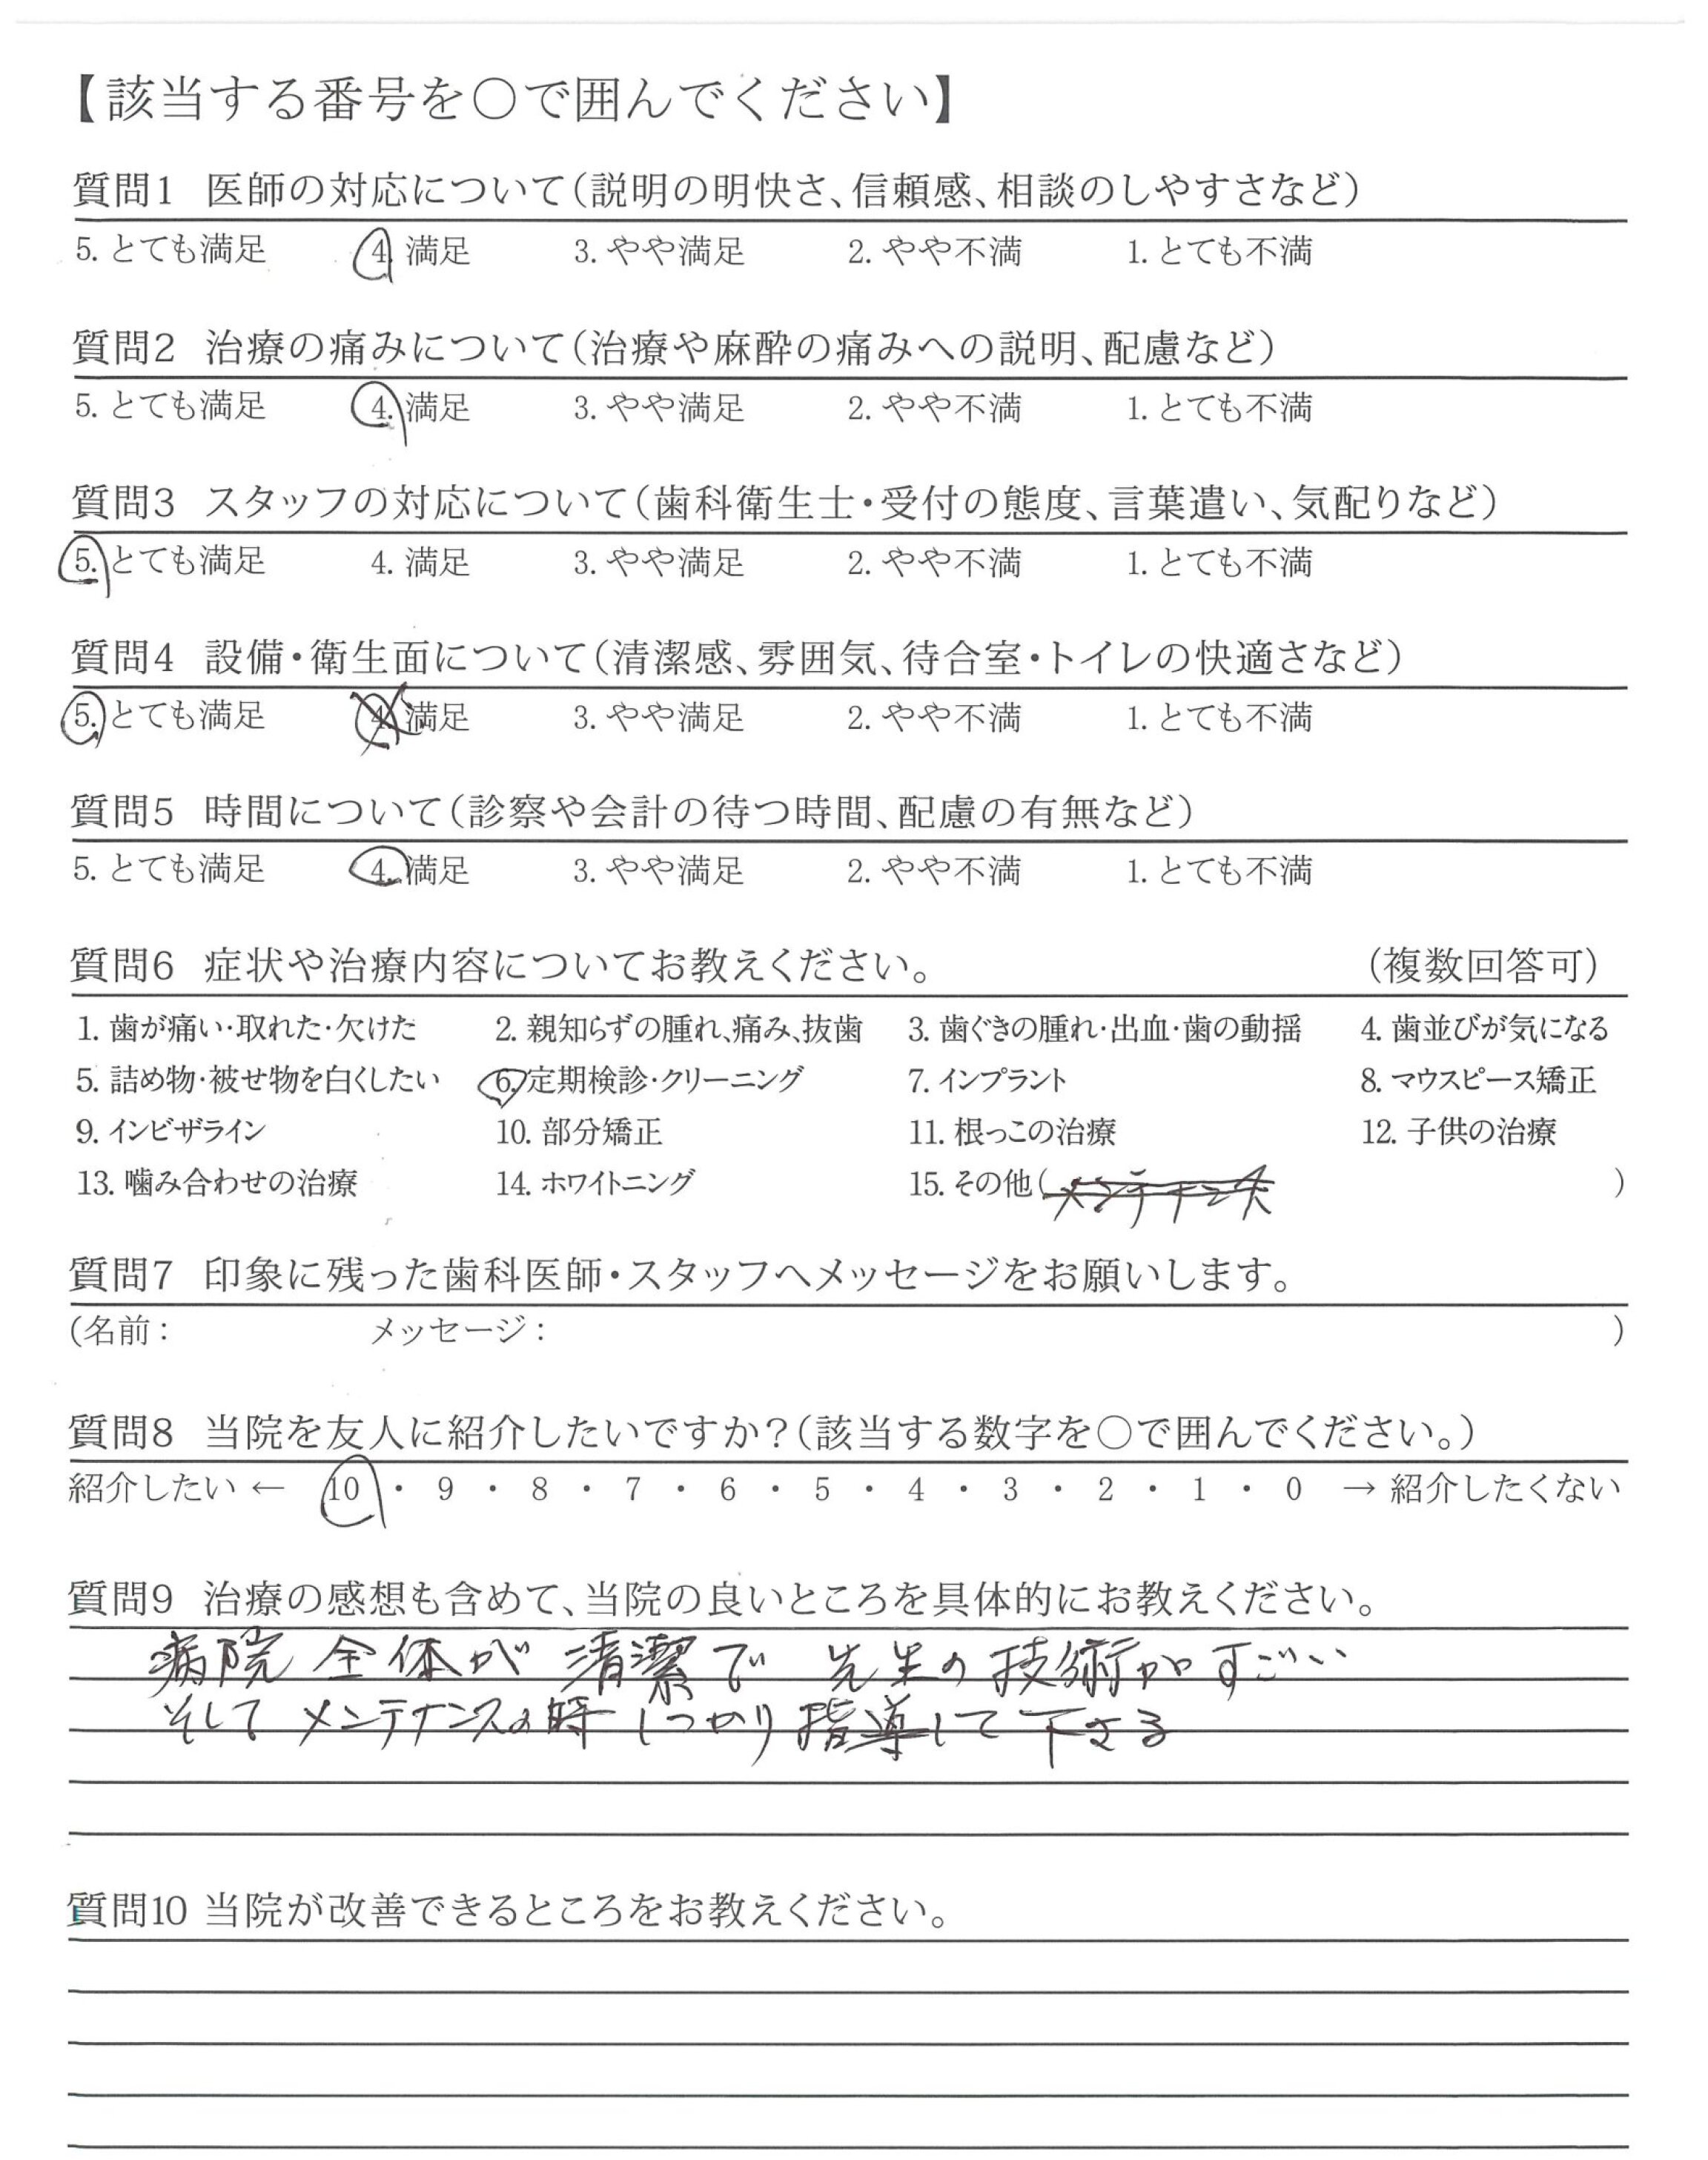 【該当する番号を○で囲んでください】
質問1 医師の対応について(説明の明快さ、信頼感、相談のしやすさなど)
5. とても満足 4. 満足 3. やや満足 2. やや不満 1. とても不満
質問2 治療の痛みについて(治療や麻酔の痛みへの説明、配慮など)
5. とても満足 4. 満足 3. やや満足 2. やや不満 1. とても不満
質問3 スタッフの対応について(歯科衛生士・受付の態度、言葉遣い、気配りなど)
5. とても満足 4. 満足 3. やや満足 2. やや不満 1. とても不満
質問4 設備・衛生面について(清潔感、雰囲気、待合室・トイレの快適さなど)
5. とても満足 4. 満足 3. やや満足 2. やや不満 1. とても不満
質問5 時間について(診察や会計の待つ時間、配慮の有無など)
5. とても満足 4. 満足 3. やや満足 2. やや不満 1. とても不満
質問6 症状や治療内容についてお教えください。 (複数回答可)
1. 歯が痛い・取れた・欠けた 2. 親知らずの腫れ、痛み、抜歯 3. 歯ぐきの腫れ・出血・歯の動揺 4. 歯並びが気になる
5. 詰め物・被せ物を白くしたい 6. 定期検診・クリーニング 7. インプラント 8. マウスピース矯正
9. インビザライン 10. 部分矯正 11. 根っこの治療 12. 子供の治療
13. 噛み合わせの治療 14. ホワイトニング 15. その他(メンテナンス )
質問7 印象に残った歯科医師・スタッフへメッセージをお願いします。
(名前: メッセージ: )
質問8 当院を友人に紹介したいですか?(該当する数字を○で囲んでください。)
紹介したい ← 10 ・ 9 ・ 8 ・ 7 ・ 6 ・ 5 ・ 4 ・ 3 ・ 2 ・ 1 ・ 0 → 紹介したくない
質問9 治療の感想も含めて、当院の良いところを具体的にお教えください。
病院全体が清潔で 先生の技術がすごい
そしてメンテナンスの時しっかり指導して下さる
質問10 当院が改善できるところをお教えください。